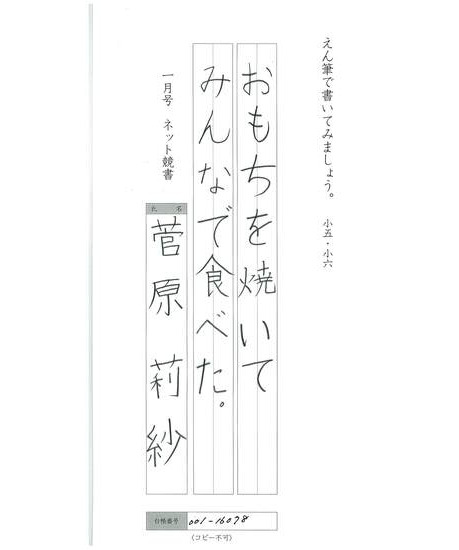 えん筆で書いてみましょう。 小五・小六
おもちを焼いて
みんなで食べた。
一月号 ネット競書
氏名
菅原 莉紗
台帳番号 001-16078
(コピー不可)